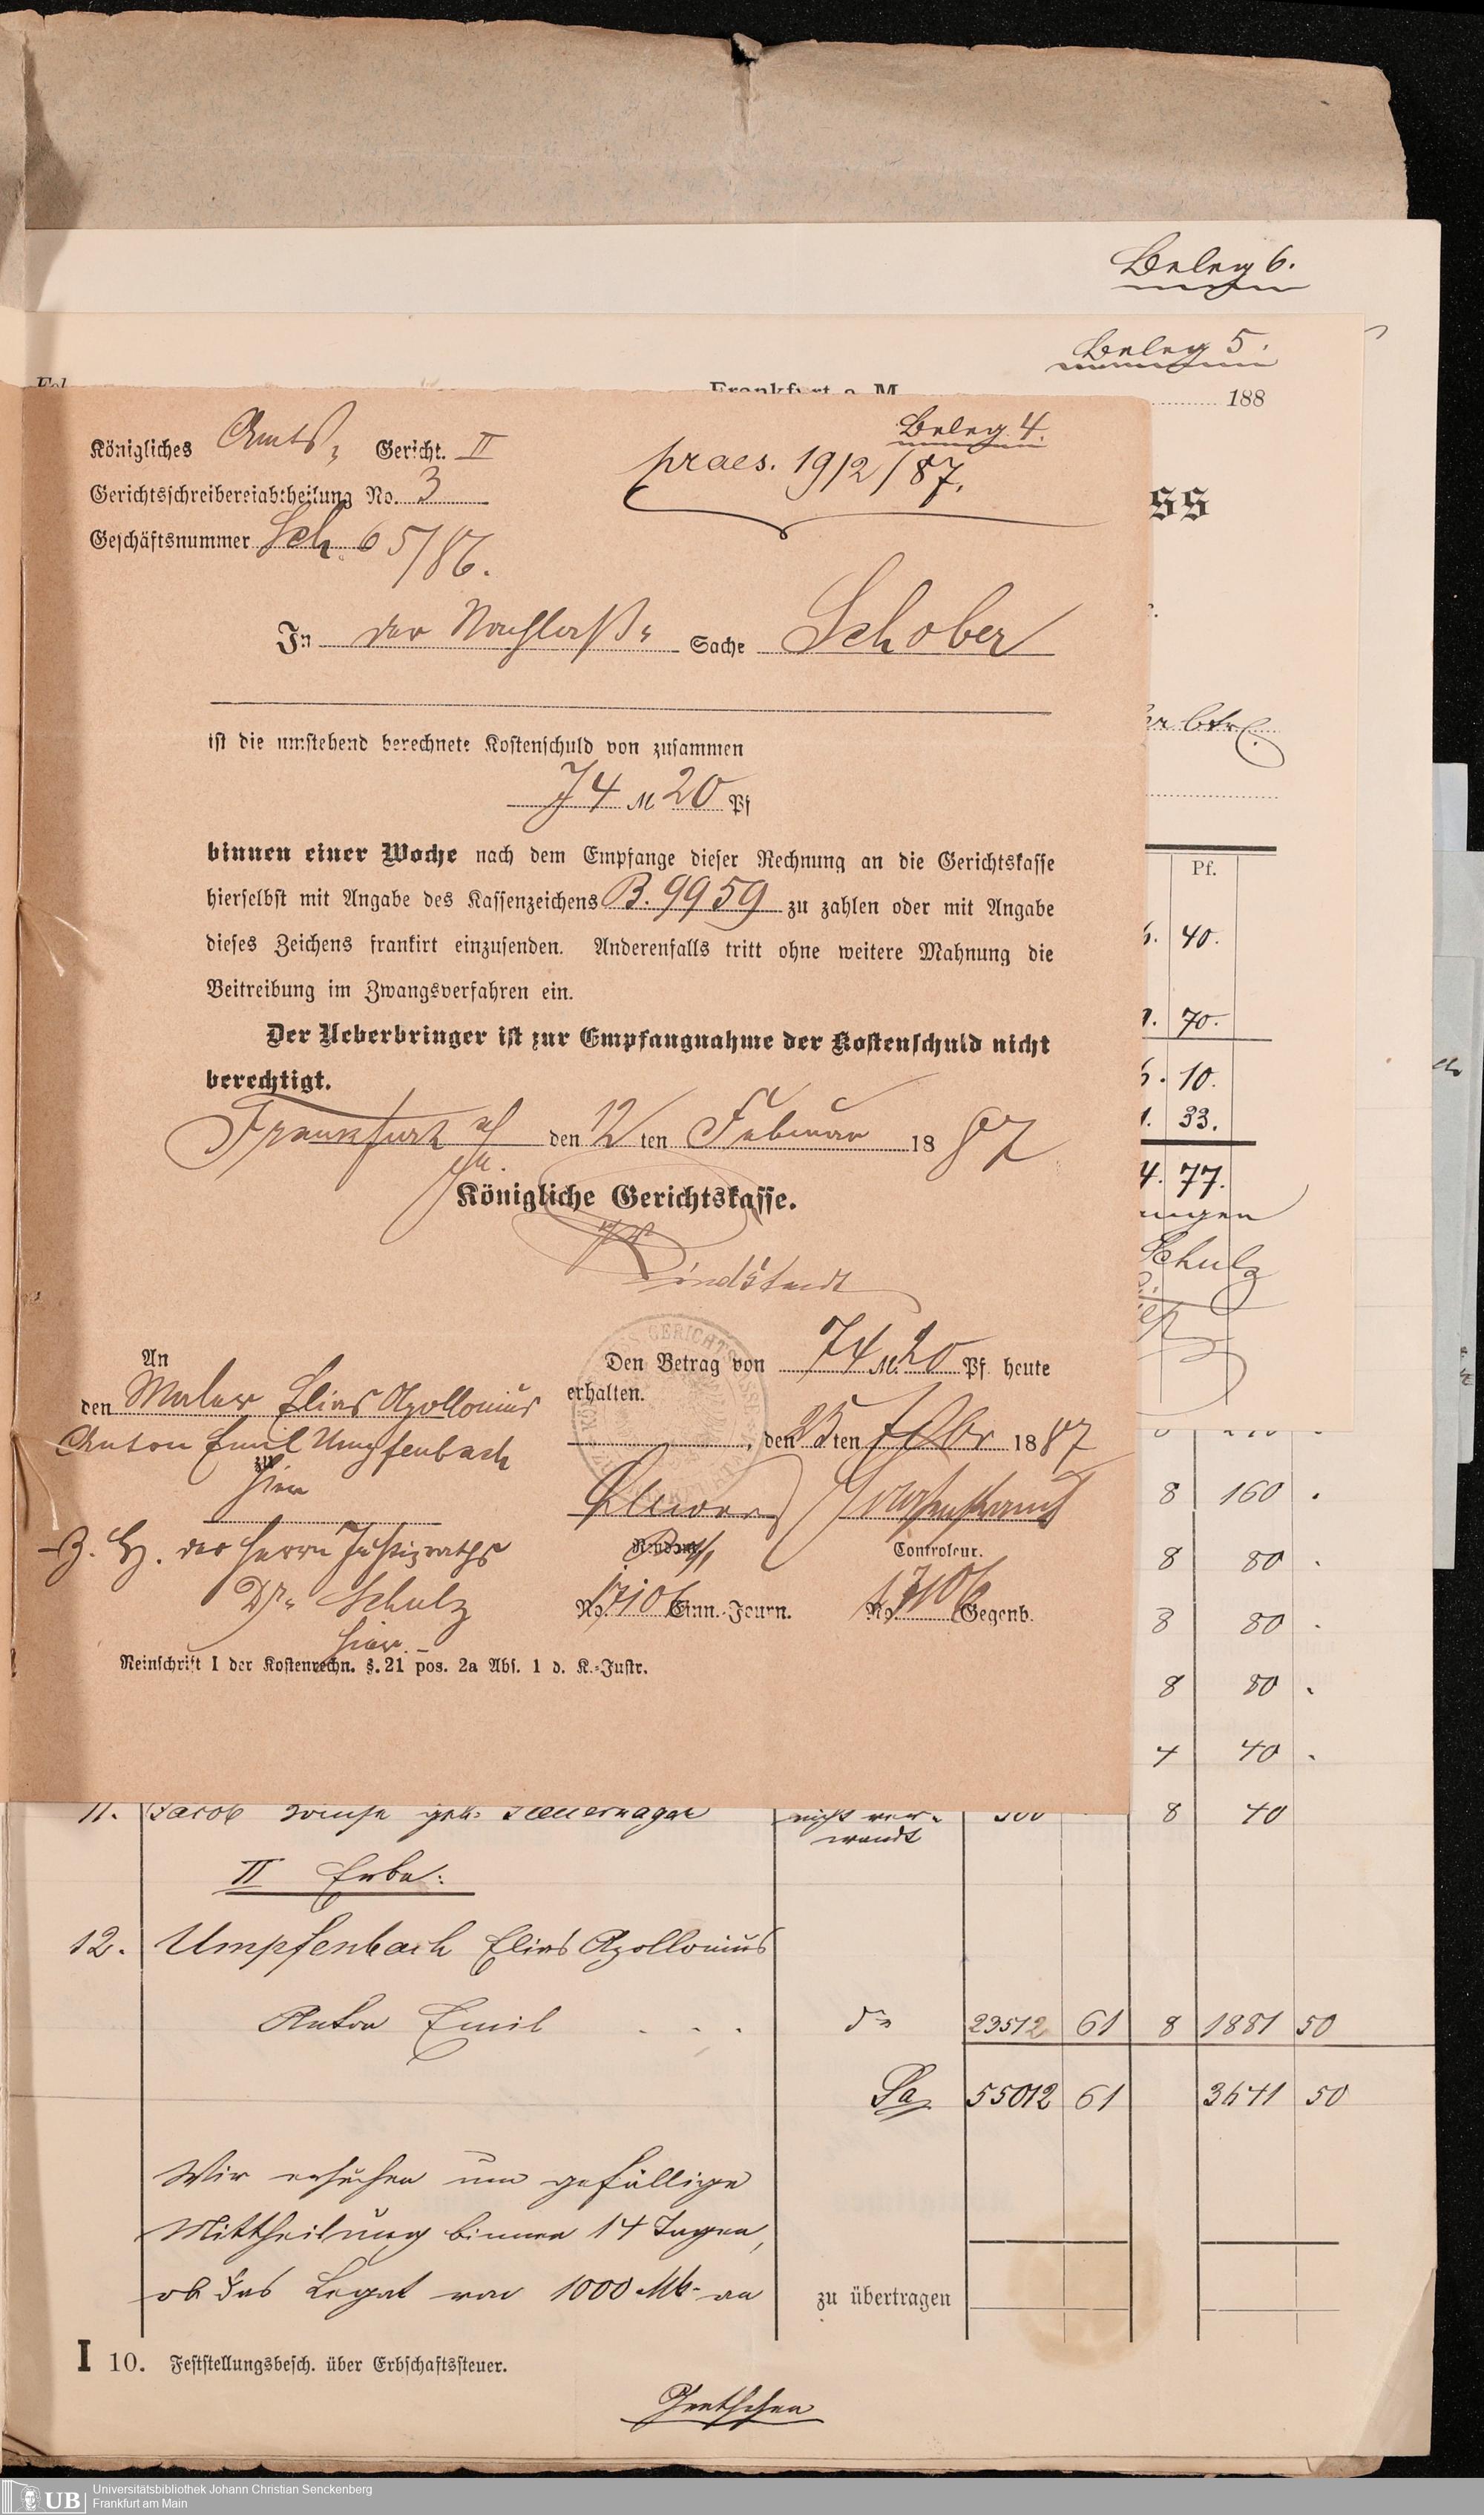 Beleg 6.
Beleg 5.
Frankfurt a. M.
188
Beleg 4.
Königliches Amts- Gericht. II
praes. 19/2/87.
Gerichtsschreibereiabtheilung No. 3
Geschäftsnummer Sch. 65/86.
ss
In der Nachlaß- Sache Schober
ist die umstehend berechnete Kostenschuld von zusammen
74 M 20 Pf
binnen einer Woche nach dem Empfange dieser Rechnung an die Gerichtskasse
hierselbst mit Angabe des Kassenzeichens B. 9959 zu zahlen oder mit Angabe
dieses Zeichens frankirt einzusenden. Anderenfalls tritt ohne weitere Mahnung die
Beitreibung im Zwangsverfahren ein.
Der Ueberbringer ist zur Empfangnahme der Kostenschuld nicht
berechtigt.
Frankfurt a/M. den 12 ten Februar 1887
Königliche Gerichtskasse.
Lindstedt
Pf.
40.
70.
10.
33.
4. 77.
Schulz
An
den Maler Elias Apollonius
Anton Emil Umpfenbach
zu
hier
z. H. des Herrn Justizraths
Dr. Schulz
hier.
Den Betrag von 74 M. 20 Pf. heute
erhalten.
, den 25 ten Febr 1887
Rendant
Controleur.
No. 17106 Einn.-Journ. No. 17106 Gegenb.
Reinschrift I der Kostenrechn. §. 21 pos. 2a Abs. 1 d. K.-Instr.
8 160 .
8 80 .
8 80 .
8 80 .
4 40 .
11. Jacob geb. nicht ver- 500 8 40
wandt
II Erbe:
12. Umpfenbach Elias Apollonius
Anton Emil . . . do 23512 61 8 1881 50
Sa. 55012 61 3641 50
Wir ersuchen um gefällige
Mittheilung binnen 14 Tagen,
ob das Legat von 1000 Mk. an
zu übertragen
I 10. Feststellungsbesch. über Erbschaftssteuer.
UB Universitätsbibliothek Johann Christian Senckenberg
Frankfurt am Main